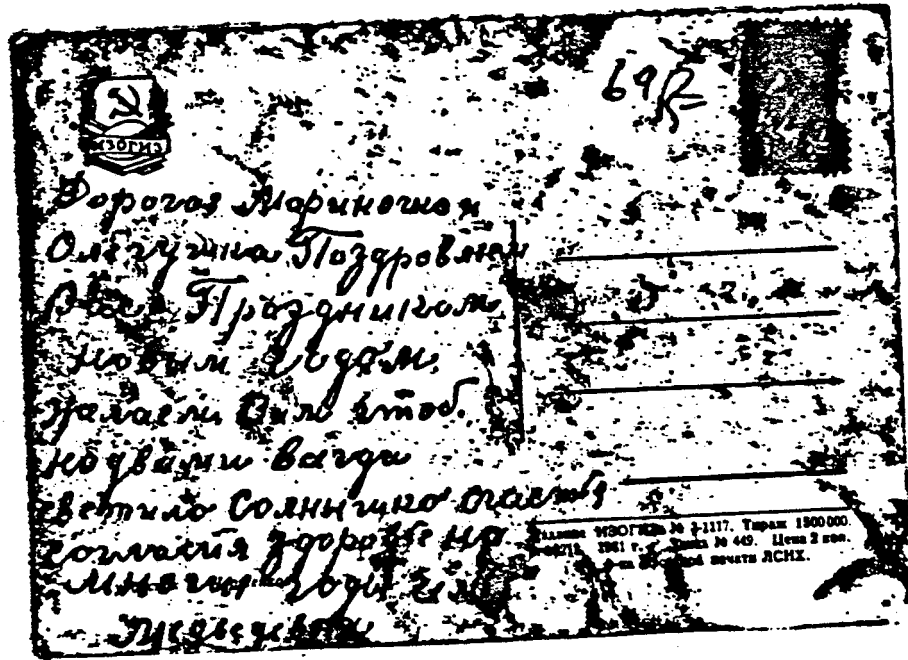 ИЗОГИЗ
69
Дорогая Мариночка и
Олегушка Поздровляем
Вас Праздником
новым Годом.
Желаем Вам чтоб.
надвами всегда
светило Солнышко счастья
согласия здоровье на
многие годы
Медведевы
Издание ИЗОГИЗа № 3-1117. Тираж 1500000.
1961 г. Заказ № 449. Цена 2 коп.
печати ЛСНХ.